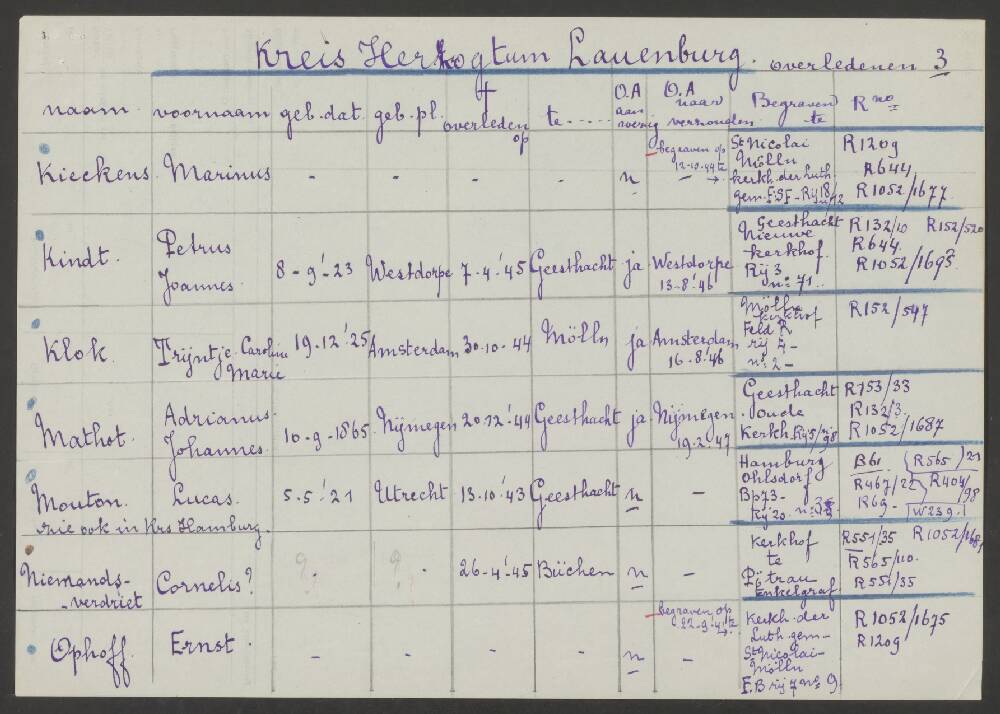 3.
Kreis Herzogtum Lauenburg. overledenen 3
naam. voornaam geb. dat. geb. pl. † overleden op te ..... O.A aanwezig O.A naar verzonden Begraven te R no
Kieckens. Marinus - - - - n begraven op 12-10-44 te → - St Nicolai Mölln kerkh. der luth gem. R1209 R644 R1052/1677
Kindt. Petrus Joannes. 8-9-'23 Westdorpe 7-4-'45 Geesthacht ja Westdorpe 13-8-'46 Geesthacht Nieuwe kerkhof. Rij 3 no 71.. R132/10 R152/520 R644. R1052/1693
Klok. Trijntje Carolina Marie 19-12-'25 Amsterdam 30-10-44 Mölln ja Amsterdam 16-8-'46 Mölln kerkhof Feld R rij 4- no 2- R152/547
Mathot. Adrianus. Johannes. 10-9-1865 Nijmegen 20-12-'44 Geesthacht ja Nijmegen 19-2-'47 Geesthacht oude Kerkh. R153/33 R132/3. R1052/1687
Mouton. Lucas. 5-5-'21 Utrecht 13-10-'43 Geesthacht n - Hamburg Ohlsdorf Bp73- Rij 20 no B61 (R565)21 R467/22 R404/98 R69- W239.
zie ook in Krs Hamburg.
Niemands-verdriet Cornelis? ?. ?. 26-4-'45 Büchen n - Kerkhof te Pötrau Enkelgraf R551/35 R565/110. R551/35
Ophoff. Ernst. - - - - n begraven op te → - Kerkh. der Luth. gem- St Nicolai- Mölln F.B rij 7 no 9. R1052/1675 R1209